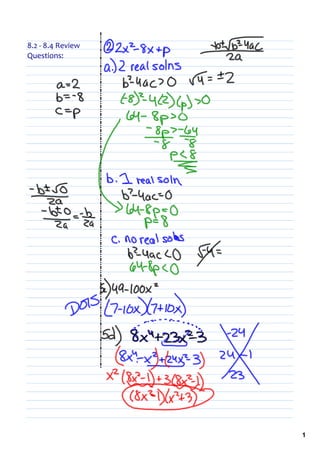 8.2 - 8.4 Review
Questions:
② 2x²-8x+p
-b±√b²-4ac
2a
a.) 2 real solns
a=2
b=-8
c=p
b²-4ac>0
√4=±2
(-8)²-4(2)(p)>0
64-8p>0
-8p>-64
-8 -8
p<8
b. 1 real soln
b²-4ac=0
64-8p=0
p=8
-b±√0
2a
-b±0 = -b
2a 2a
c. no real solns
b²-4ac<0
√-4=
64-8p<0
5c) 49-100x²
DOTS (7-10x)(7+10x)
5d) 8x⁴+23x²-3
(8x⁴-x²)+(24x²-3)
x²(8x²-1)+3(8x²-1)
(8x²-1)(x²+3)
-24
24 -1
23
1